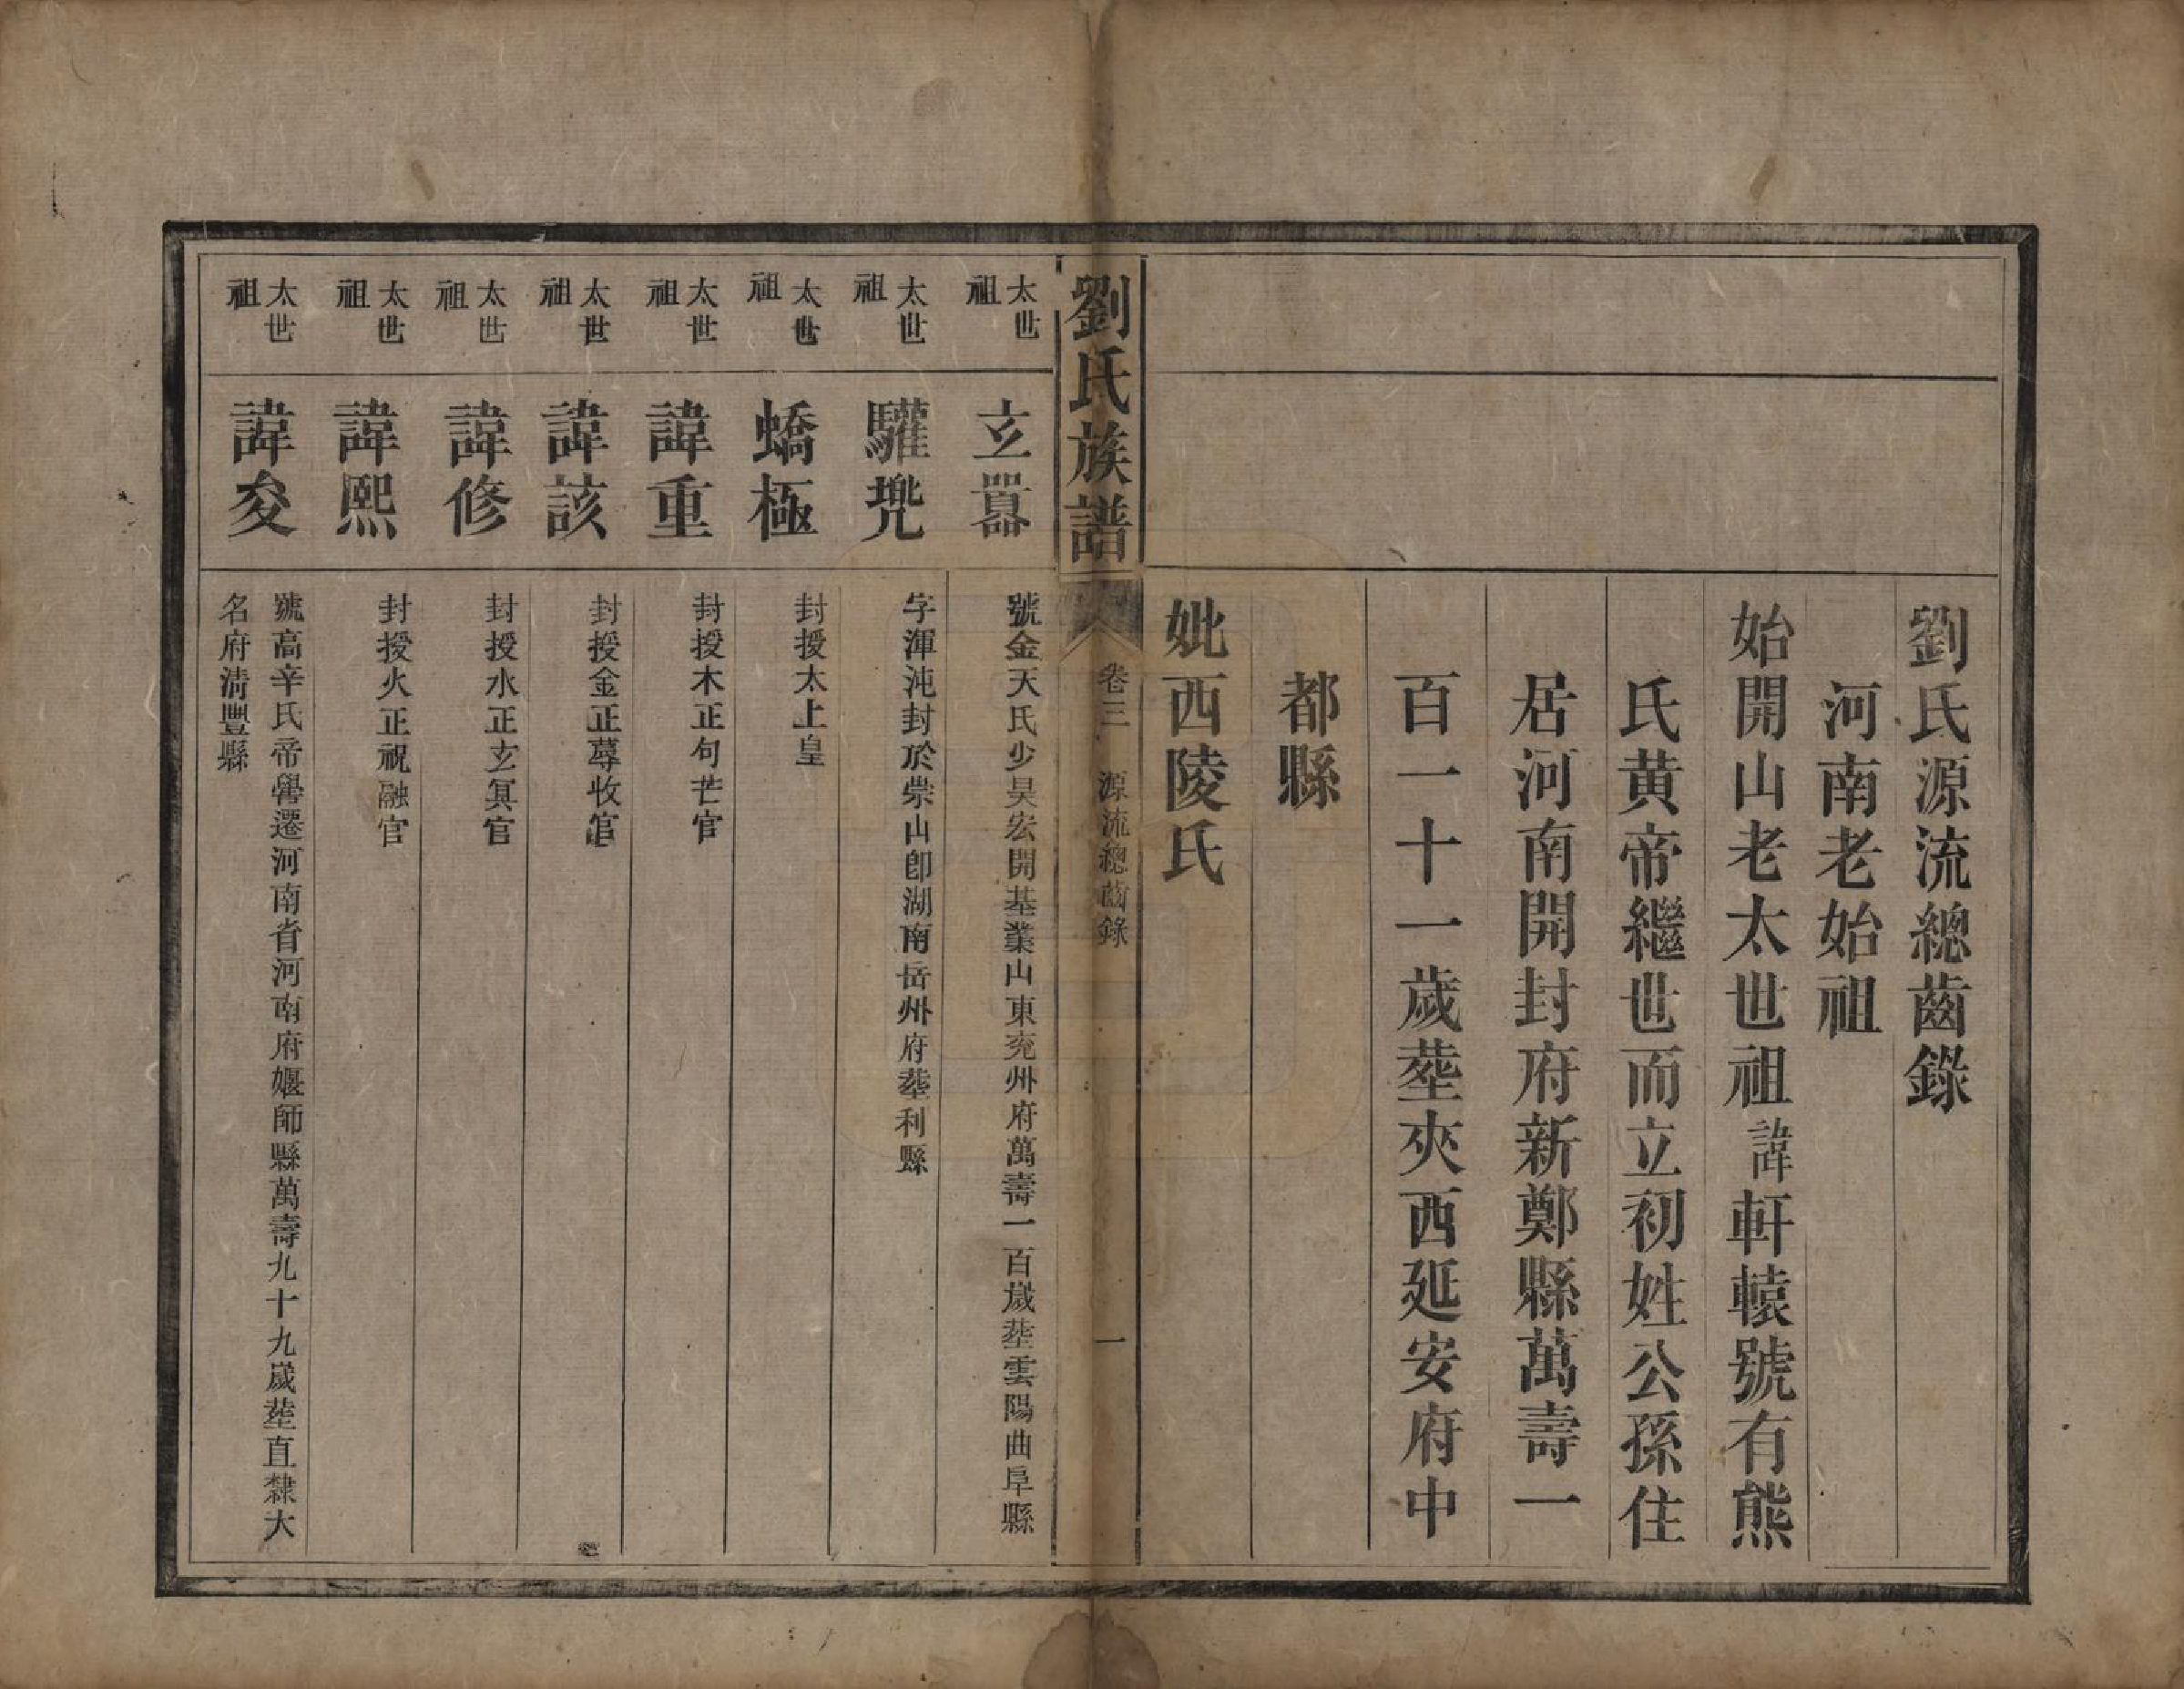 劉氏源流總齒錄
河南老始祖
始開山老太世祖諱軒轅號有熊
氏黄帝繼世而立初姓公孫住
居河南開封府新鄭縣萬壽一
百一十一歲塟夾西延安府中
都縣
妣西陵氏
劉氏族譜 卷三 源流總齒錄 一
太世祖 玄囂 號金天氏少昊宏開基業山東兖州府萬壽一百嵗塟雲陽曲阜縣
太世祖 驩兠 字渾沌封於崇山卽湖南岳州府塟利縣
太世祖 蟜極 封授太上皇
太世祖 諱重 封授木正句芒官
太世祖 諱該 封授金正蓐收官
太世祖 諱修 封授水正玄冥官
太世祖 諱熙 封授火正祝融官
太世祖 諱夋 號高辛氏帝嚳遷河南省河南府堰師縣萬壽九十九嵗塟直隸大
名府清豐縣